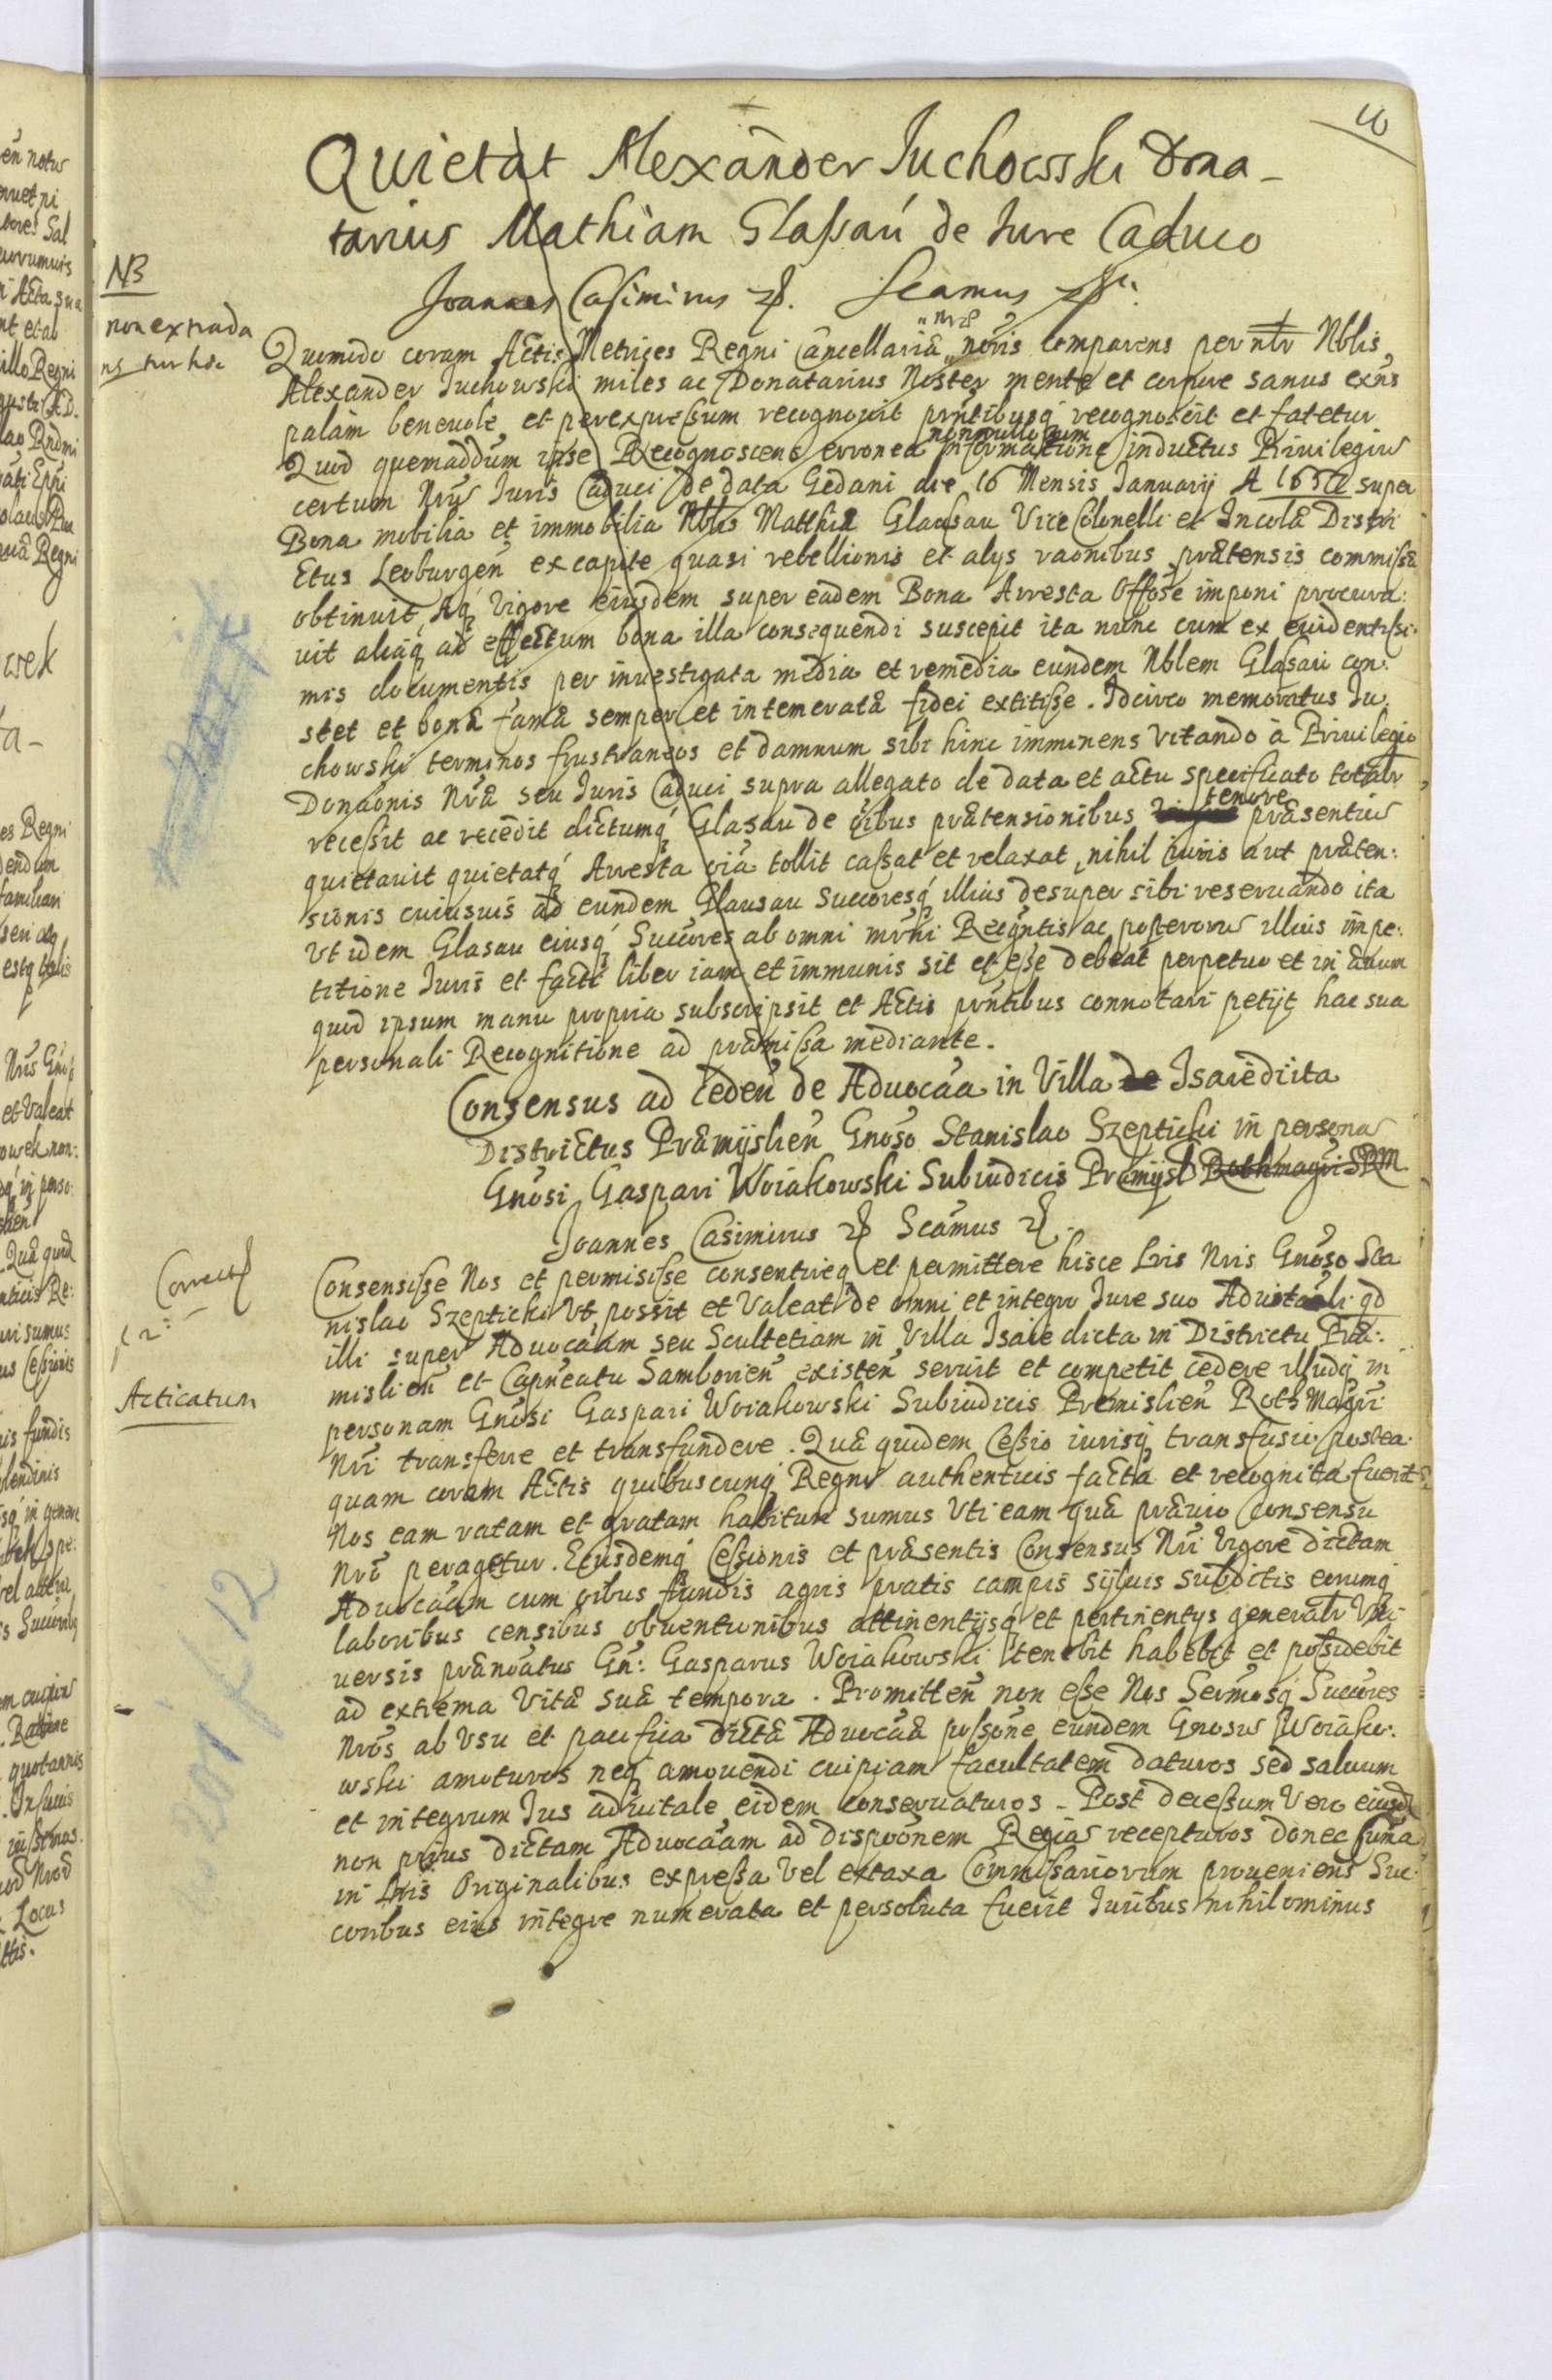 10
Quietat Alexander Juchowski Dona-
tarius Mathiam Glaßau de Jure Caduco
NB
non extrada
Joannes Casimirus Scamus
Quomodo coram Actis Metrices Regni Cancellariæ nŕis comparens per Nblis
Alexander Juchowski miles ac Donatarius Noster mente et corpore sanus exñs
palàm benevole et per expreßum recognovit prntibusq́ recognoscit et fatetur
nonnullorum
Quod quemaddum ipse Recognoscens erronea informatione inductus Privilegiũ
certum Nrũ Juris Caduci de data Gedani die 16 Mensis Januarij A super
Bona mobilia et immobilia Nblis Matthiæ Glausau Vice Colonelli et Incolæ Distri
ctus Leoburgeñ ex capite quasi rebellionis et alys raonibus prætensis commißæ
obtinuit, Aq́ Vigore eiusdem super eadem Bona Arresta Offose imponi procura:
vit aliáq ad effectum bona illa consequendi suscepit ita nunc cum ex evidentißi-
mis documentis per investigata media et remedia eundem Nblem Glasau con:
stet et bonæ famæ semper et intemeratæ fidei extitiße. Idcirco memoratus Ju.
chowski terminos frustraneos et damnum sibi hinc imminens vitando à Privilegio
Donaonis Nræ seu Juris Caduci supra allegato de data et actu specificato totalr
receßit ac recedit dictumq́ Glasau de oibus prætensionibus tenore præsentiũ
quietavit quietatq́ Arresta oia tollit caßat et relaxat, nihil iuris aut præten:
sionis cuiusuis ad eundem Glausau Succoresq́ illius desuper sibi reservando ita
Vt idem Glasau eiusq́ Succores ab omni mõni Recogntis ac posterorũ illius impe:
titione Juris et facti liber iam et immunis sit et eße debeat perpetuo et in ævum
quod ipsum manu propria subscripsit et Actis prntibus connotari petijt hac sua
personali Recognitione ad præmißa mediante.
Consensus ad cedeñ de Advocãa in Villa de Isaie dicta
Districtus Præmijslieñ Gnõso Stanislao Szepticki in personã
Gnõsi Gaspari Woiakowski Subiudicis Præmijsl Rothmagri SRM
Joannes Casimirus Scamus
Correct
Consensiße Nos et permisiße consentireq et permittere hisce Lris Nris Gnõso Sta
nislao Szepticki Vt possit et Valeat de omni et integro Jure suo Advitali qd
illi super Advocãam seu Scultetiam in Villa Isaie dicta in Districtu Præ:
Acticatum
mislieñ et Capneatu Samborieñ existeñ servit et competit cedere illudq́ in
personam Gnõsi Gaspari Woiakowski Subiudicis Premislieñ Roth Magri
Nri transferre et transfundere. Quæ quidem Ceßio iurisq́ transfusio postea.
quam coram Actis quibuscunq́ Regni authenticis facta et recognita fuerit
Nos eam ratam et gratam habituri sumus Vti eam quæ prævio Consensu
Nrõ peragetur. Eiusdemq́ Ceßionis et præsentis Consensus Nri Vigore dictam
Advocãam cum oibus fundis agris pratis campis sijluis subditis eorumq́
laboribus censibus obventionibus attinentijsq́ et pertinentys generalr Vni
uersis prænoatus Gñ: Gasparus Woiakowski tenebit habebit et poßidebit
ad extrema Vitæ suæ tempora. Promitteñ non eße Nos Sermosq́ Succores
Nrõs ab Vsu et pacifica dictæ Advocãæ poßone eundem Gnosũ Woiako:
wski amoturos neq́ amovendi cuipiam facultatem daturos sed salvum
et integrum Jus advitale eidem conservaturos - Post deceßum Vero eiusd
non prius dictam Advocãam ad dispoõnem Regiã recepturos donec suma
in Lris Originalibus expreßa Vel ex taxa Commißariorum proveniens Suc.
coribus eius integre numerata et persoluta fuerit Juribus nihilominus